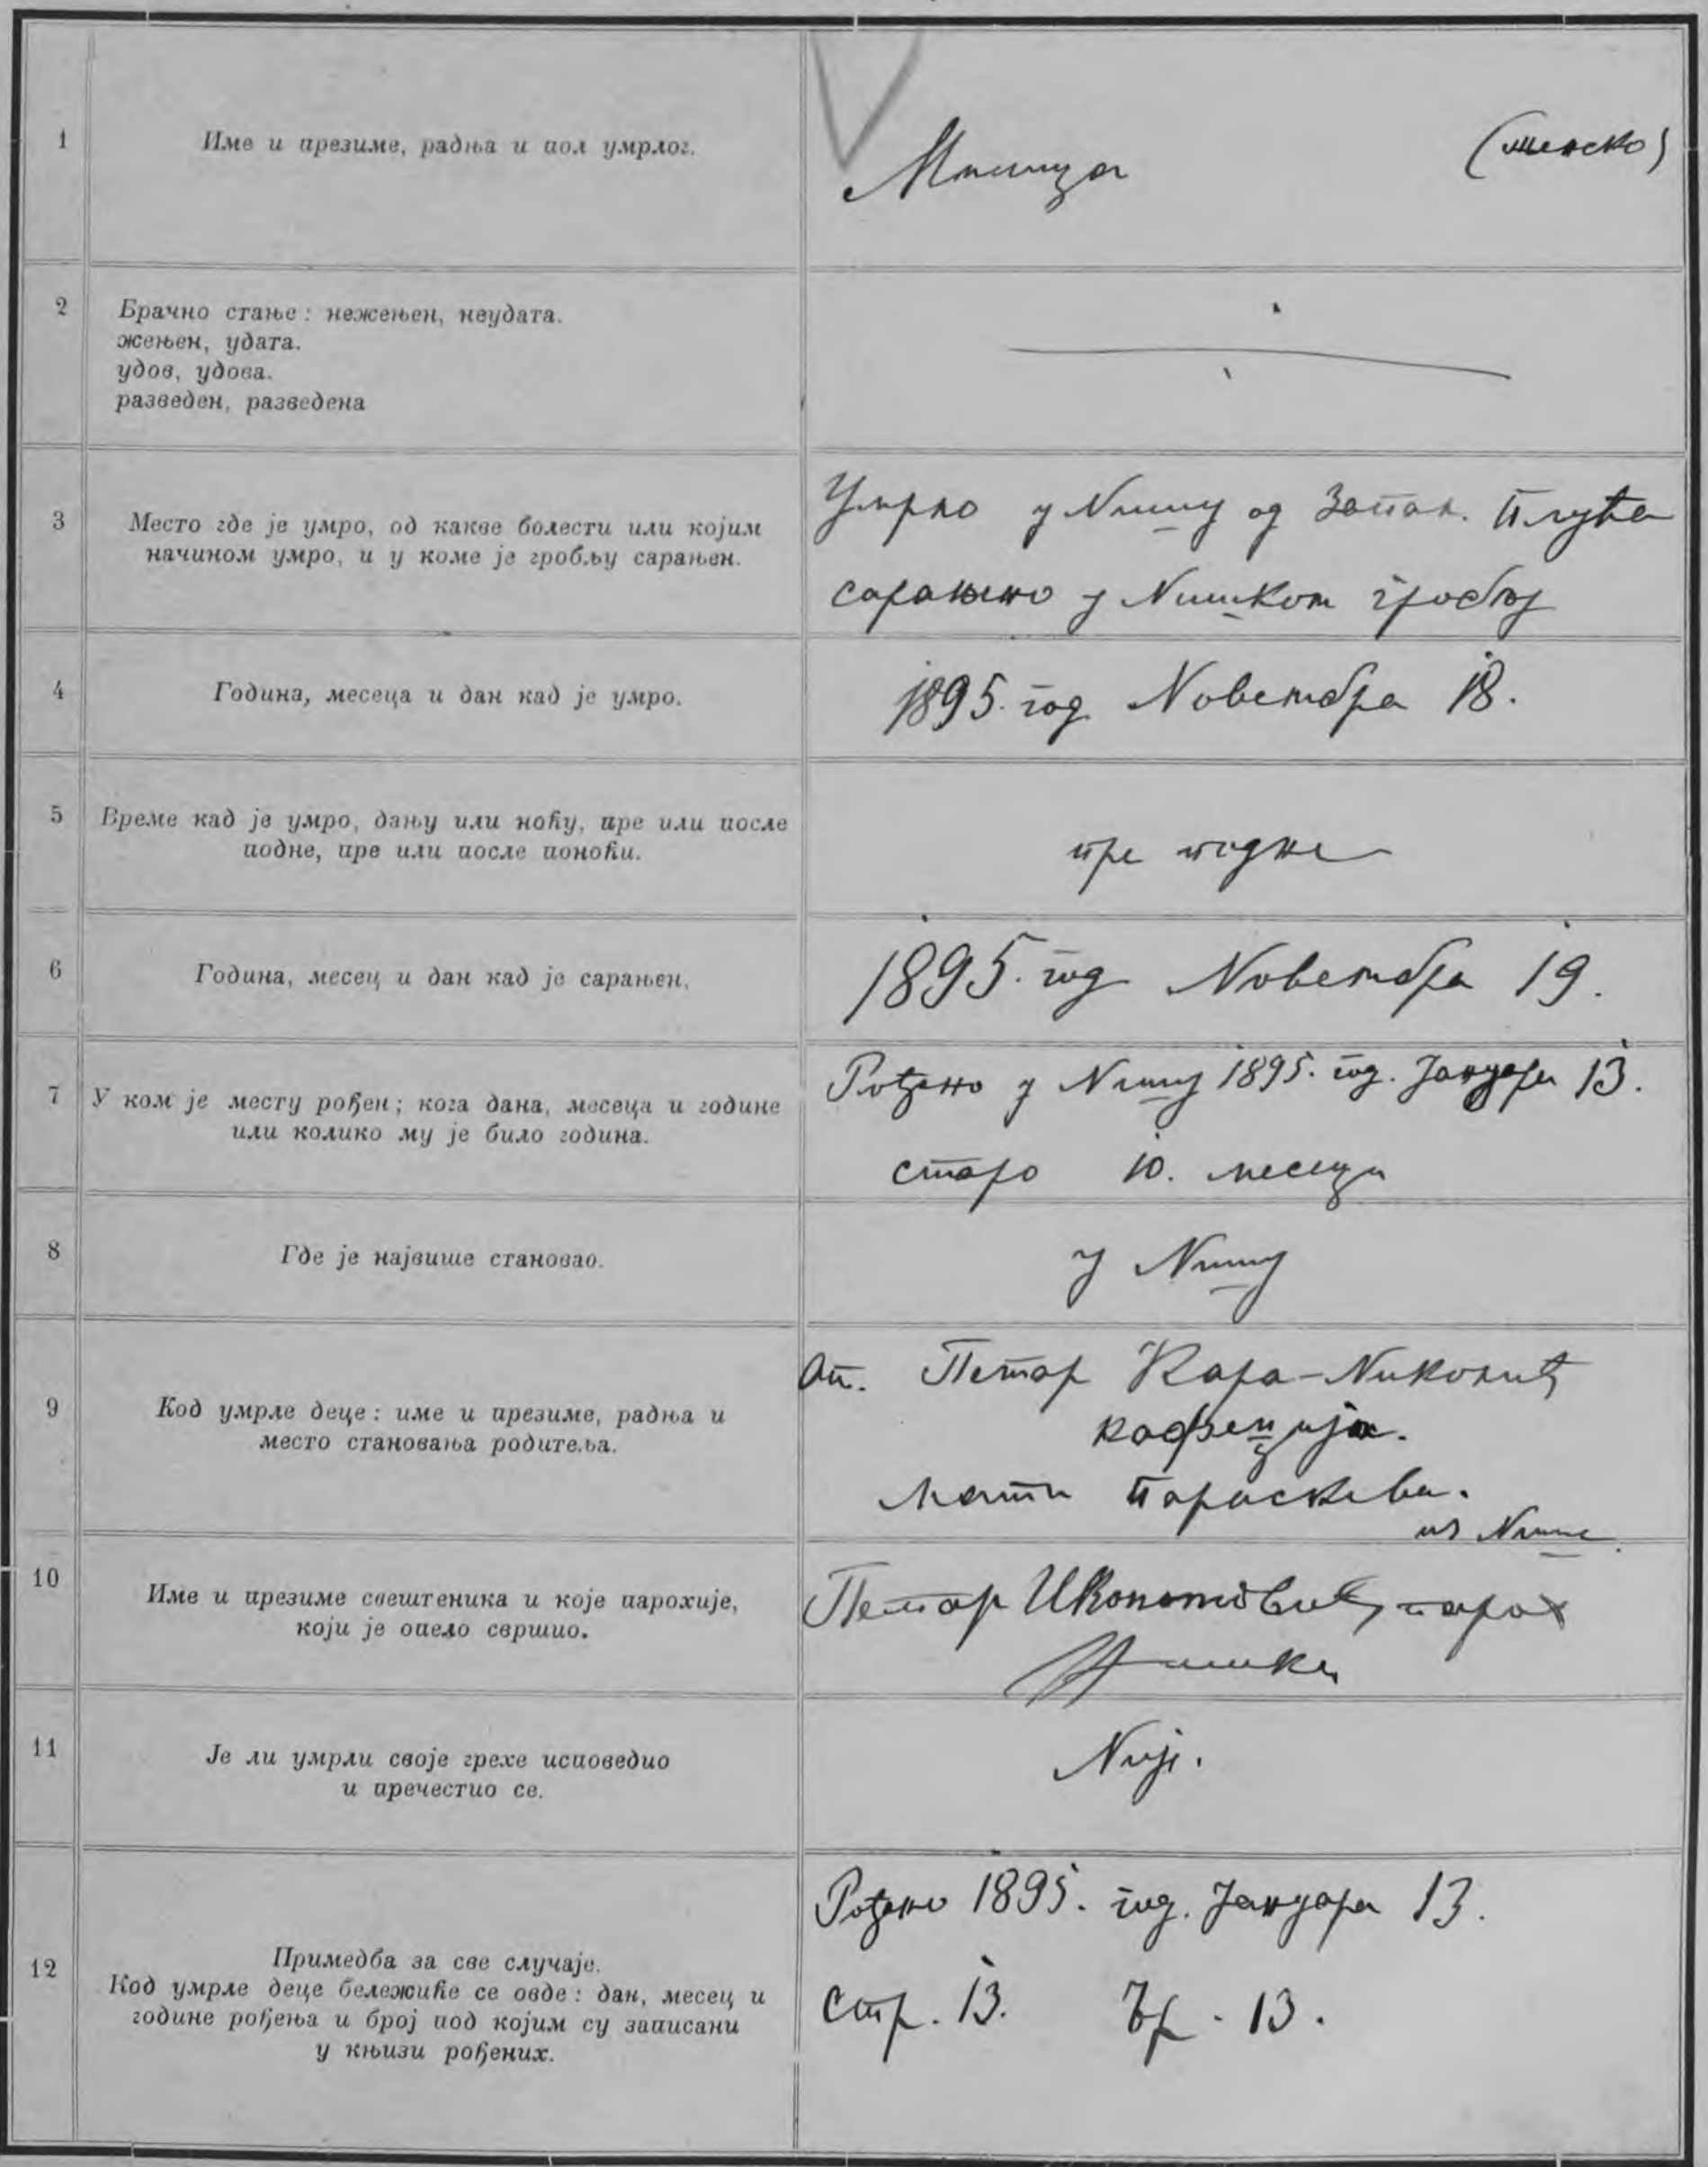 1
Име и презиме, радња и пол умрлог.
Милица
(женско)
2
Брачно стање: нежењен, неудата.
жењен, удата.
удов, удова.
разведен, разведена
3
Место где је умро, од какве болести или којим
начином умро, и у коме је гробљу сарањен.
Умрло у Nишу од Запал. Плућа
сарањено у Nишком гробљу
4
Година, месеца и дан кад је умро.
1895. год Nовембра 18.
5
Време кад је умро, дању или ноћу, пре или после
подне, пре или после поноћи.
пре подне
6
Година, месец и дан кад је сарањен.
1895. год Nовембра 19.
7
У ком је месту рођен; кога дана, месеца и године
или колико му је било година.
Рођено у Nишу 1895. год. Јануара 13.
старо 10. месеци
8
Где је највише становао.
у Nишу
9
Код умрле деце: име и презиме, радња и
место становања родитеља.
От. Петар Кара-Nиколић
кафеџија.
мати Параскева.
из Nиша.
10
Име и презиме свештеника и које парохије,
који је опело свршио.
Петар Икономовић, парох
Нишки
11
Је ли умрли своје грехе исповедио
и пречестио се.
Nије.
12
Примедба за све случаје.
Код умрле деце бележиће се овде: дан, месец и
године рођења и број под којим су записани
у књизи рођених.
Рођено 1895. год. Јануара 13.
Стр. 13. Бр. 13.